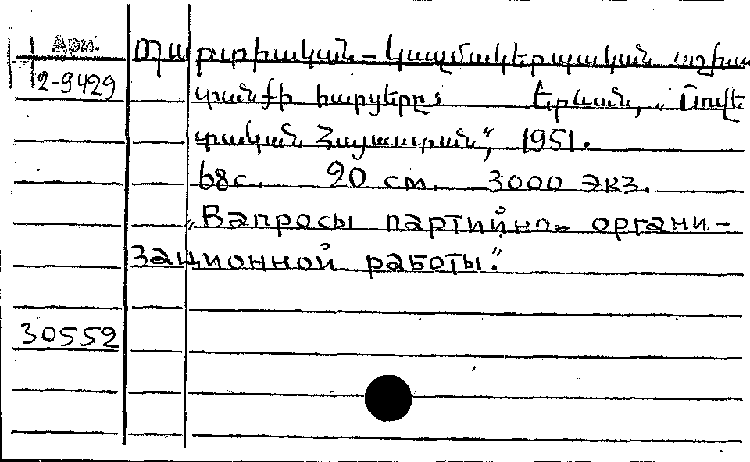 Арм.
2-9429
Պարտիական-կազմակերպական աշխա
տանքի հարցերը: Երևան, „Սովե
տական Հայաստան", 1951.
68с. 20 см. 3000 экз.
„Вапросы партийно- органи-
зационной работы."
30552